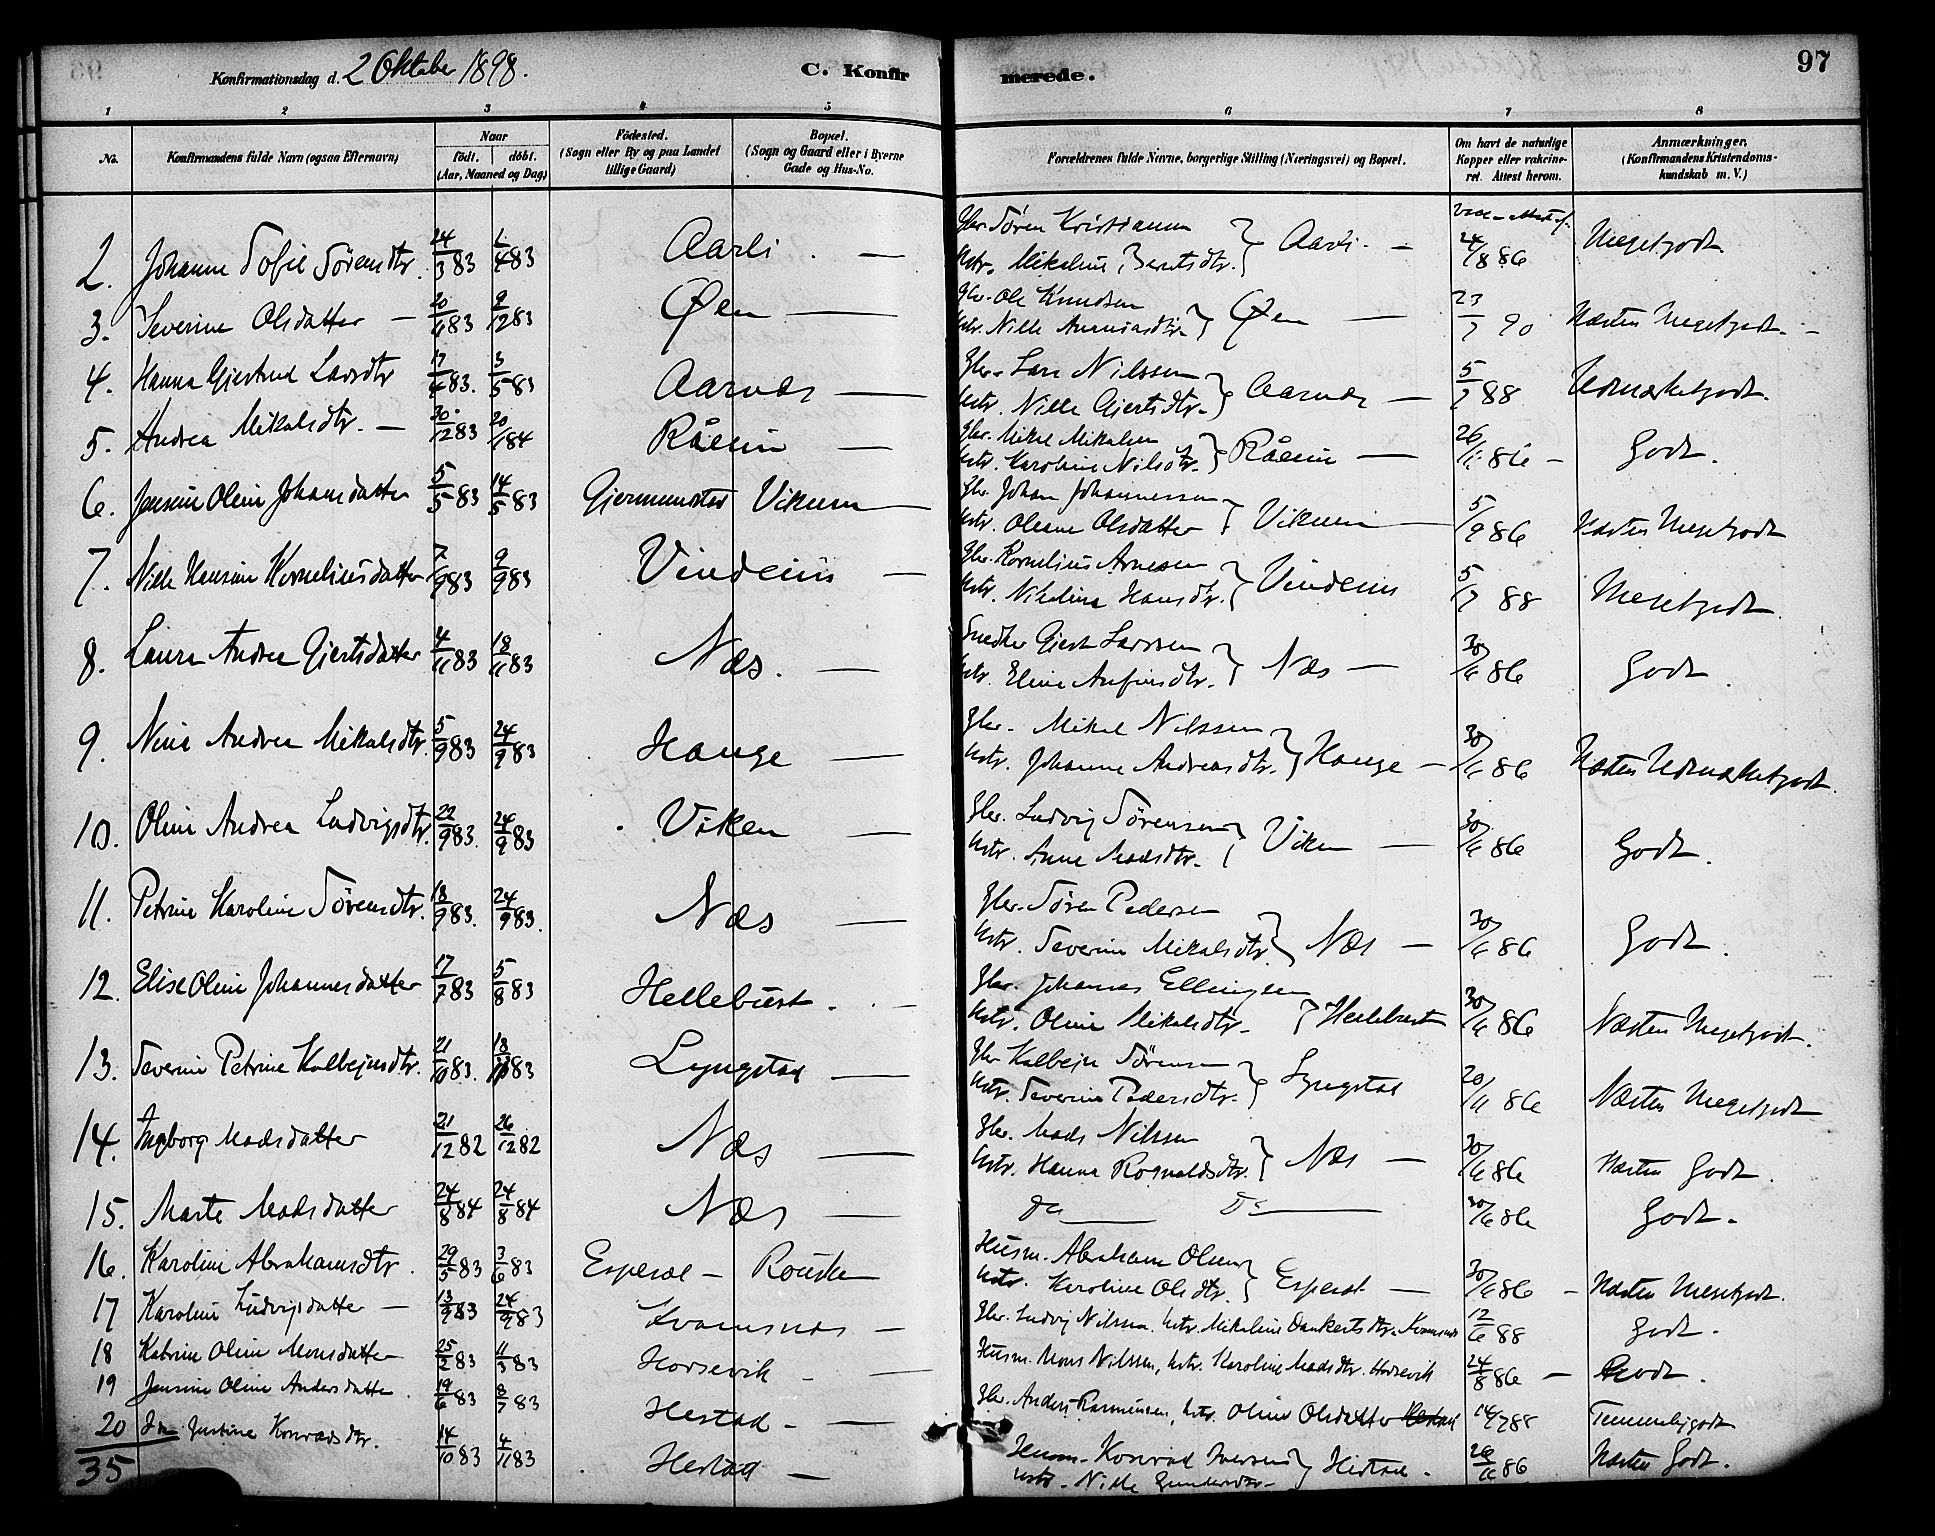 Konfirmationsdag d. 2 Oktober 1898.
C. Konfirmerede.
97
1 2 3 4 5 6 7 8
No.
Konfirmandens fulde Navn (ogsaa Efternavn)
Naar
födt. döbt.
(Aar, Maaned og Dag)
Födested.
(Sogn eller By og paa Landet tillige Gaard)
Bopæl.
(Sogn og Gaard eller i Byerne Gade og Hus-No.
Forældrenes fulde Navne, borgerlige Stilling (Næringsvei) og Bopæl.
Om havt de naturlige Kopper eller vakcineret. Attest herom.
Anmærkninger.
(Konfirmandens Kristendomskundskab m. V.)
2. Johanne Sofie Sørensdtr. 24/3 83 1/4 83 Aarli. — Gbr. Søren Kristiansen
Hstr. Mikaline Berntsdtr. } Aarli. — 24/8 86 Megetgodt.
3. Severine Olsdatter — 20/11 83 9/12 83 Øen — Gbr. Ole Knudsen
Hstr. Nille Ananiasdtr. } Øen — 23/7 90 Næsten Megetgodt. —
4. Hanna Gjertrud Larsdtr 17/4 83. 3/5 83 Aarnæs — Gbr. Lars Nilssen
Hstr. Nille Gjertsdtr. } Aarnæs — 5/7 88 Udmærketgodt.
5. Andrea Mikalsdtr. — 30/12 83 20/1 84 Råeim — Gbr. Mikal Mikalsen
Hstr. Karoline Nilsdtr. } Råeim — 26/11 86 — Godt.
6. Jensine Oline Johansdatter 5/5 83 14/5 83 Gjermunstad Vikum — Gbr. Johan Johannessen
Hstr. Oleane Olsdatter } Vikum — 5/9 86 Næsten Megetgodt
7. Nille Hansine Kornelius datter 7/9 83 9/9 83 Vindeius — Gbr. Kornelius Arnesen
Hstr. Nikoline Hansdtr. } Vindeius 5/7 88 Megetgodt.
8. Laura Andrea Gjertsdatter 4/11 83 18/11 83 Næs. — Snedker Gjert Larssen
Hstr. Eline Anfinsdtr. } Næs — 30/6 86 Godt.
9. Nina Andrea Mikalsdtr. 5/9 83 24/9 83 Hauge — Gbr. Mikal Nilssen
Hstr. Johanne Andreasdtr. } Hauge — 30/6 86 Næsten Udmærketgodt.
10. Oline Andrea Ludvigsdtr. 22/9 83. 24/9 83 Viken — Gbr. Ludvig Sørensen
Hstr. Anne Madsdtr. } Viken — 30/6 86 Godt.
11. Petrine Karoline Sørensdtr. 18/9 83. 24/9 83. Næs — Gbr. Søren Pedersen
Hstr. Severine Mikalsdtr. } Næs — 30/6 86 Godt.
12. Elise Oline Johannesdatter 17/7 83 5/8 83 Hellebust. — Gbr. Johannes Ellingsen
Hstr. Oline Mikalsdtr. } Hellebust 30/6 86 Næsten Megetgodt.
13. Severine Petrine Kolbejnsdtr. 21/10 83. 18/11 83 Lyngstad — Gbr Kolbejn Sørensen
Hstr. Severine Pedersdtr. } Lyngstad 20/11 86 Næsten Megetgodt
14. Ingborg Madsdatter 21/12 82 26/12 82 Næs — Gbr. Mads Nilssen
Hstr. Hanna Rognaldsdtr. } Næs — 30/6 86 Næsten Godt.
15. Marte Madsdatter 24/8 84 24/8 84 Næs — Do — Do — 30/6 86 Godt.
16. Karoline Abrahamsdtr. 29/5 83 3/6 83 Esperal — Husm. Abraham Olsen
Hstr. Karoline Olsdtr. } Esperal. — 30/6 86 — Næsten Megetgodt.
17 Karoline Ludvigsdatter — 13/9 83 24/9 83 Kvamsnæs — Gbr. Ludvig Nilssen. hstr. Mikaline Dankertsdtr. Kvamsnæs 12/6 88 Godt.
18 Katrine Oline Monsdatter 25/2 83 11/3 83 Horsevik — Husm. Mons Nilssen, hstr. Karoline Madsdtr. Horsevik 24/8 86 — Godt.
19 Jensine Oline Andersdatter. 19/6 83 8/7 83 Hestad — Gbr. Anders Rasmussen, hstr. Oline Olsdatter Hestad 14/7 88 Temmeligodt
20 Justine Konradsdtr. 14/10 83 4/11 83 Hestad — Husm. Konrad Iversen
hstr. Nille } Hestad. 26/11 86 Næsten Godt.
35